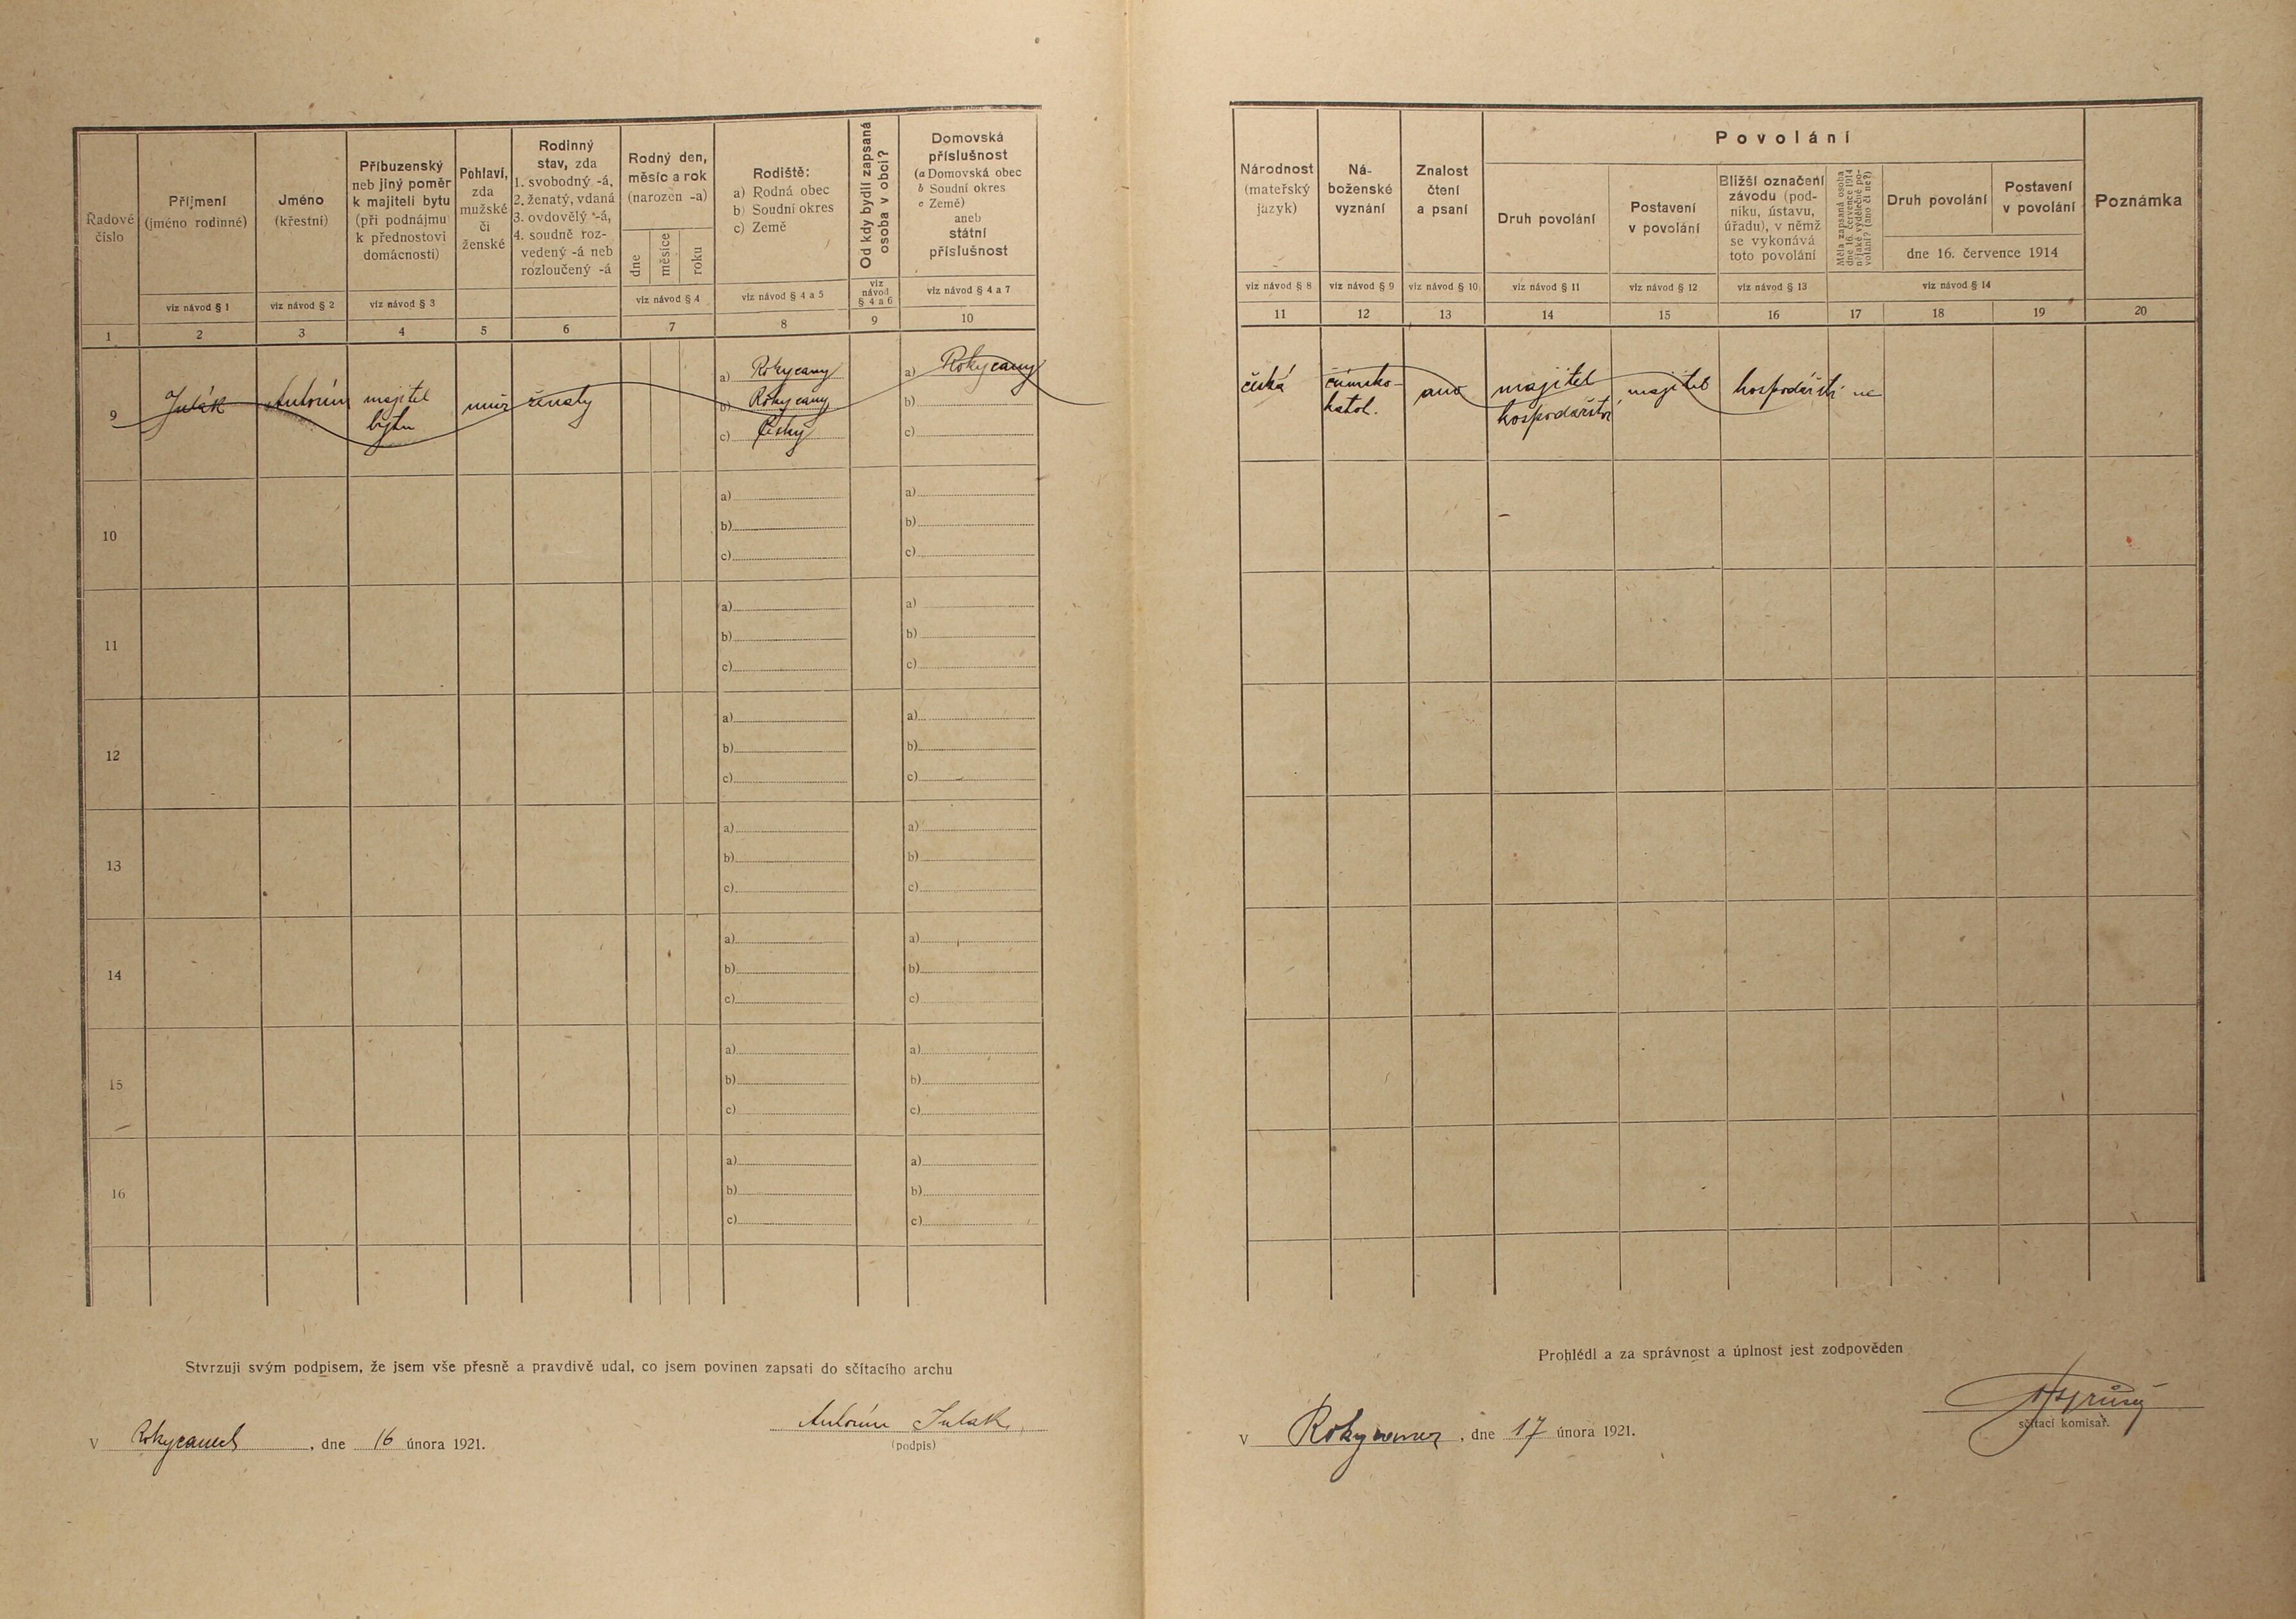 Řadové
číslo
Příjmení
(jméno rodinné)
viz návod § 1
Jméno
(křestní)
viz návod § 2
Příbuzenský
neb jiný poměr
k majiteli bytu
(při podnájmu
k přednostovi
domácnosti)
viz návod § 3
Pohlaví,
zda
mužské
či
ženské
Rodinný
stav, zda
1. svobodný -á,
2. ženatý, vdaná
3. ovdovělý -á,
4. soudně roz-
vedený -á neb
rozloučený -á
Rodný den,
měsíc a rok
(narozen -a)
dne
měsíce
roku
viz návod § 4
Rodiště:
a) Rodná obec
b) Soudní okres
c) Země
viz návod § 4 a 5
Od kdy bydlí zapsaná
osoba v obci?
viz
návod
§ 4 a 6
Domovská
příslušnost
(a Domovská obec
b Soudní okres
c Země)
aneb
státní
příslušnost
viz návod § 4 a 7
1 2 3 4 5 6 7 8 9 10
9 Julák Antonín majitel
bytu
muž ženatý
a) Rokycany
b) Rokycany
c) Český
a) Rokycany
b)
c)
10
a) a)
b) b)
c) c)
11
a) a)
b) b)
c) c)
12
a) a)
b) b)
c) c)
13
a) a)
b) b)
c) c)
14
a) a)
b) b)
c) c)
15
a) a)
b) b)
c) c)
16
a) a)
b) b)
c) c)
Stvrzuji svým podpisem, že jsem vše přesně a pravdivě udal, co jsem povinen zapsati do sčítacího archu
Antonín Julák
V Rokycanech, dne 16 února 1921.
(podpis)
Národnost
(mateřský
jazyk)
viz návod § 8
Ná-
boženské
vyznání
viz návod § 9
Znalost
čtení
a psaní
viz návod § 10
Povolání
Druh povolání
viz návod § 11
Postavení
v povolání
viz návod § 12
Bližší označení
závodu (pod-
niku, ústavu,
úřadu), v němž
se vykonává
toto povolání
viz návod § 13
Měla zapsaná osoba
dne 16. července 1914
nějaké výdělečné po-
volání? (ano či ne?)
Druh povolání
Postavení
v povolání
dne 16. července 1914
viz návod § 14
Poznámka
11 12 13 14 15 16 17 18 19 20
česká
římsko-
katol.
ano
majitel
hospodářství
majitel
hospodářství
ne
Prohlédl a za správnost a úplnost jest zodpověden
V Rokycanech, dne 17 února 1921.
sčítací komisař.